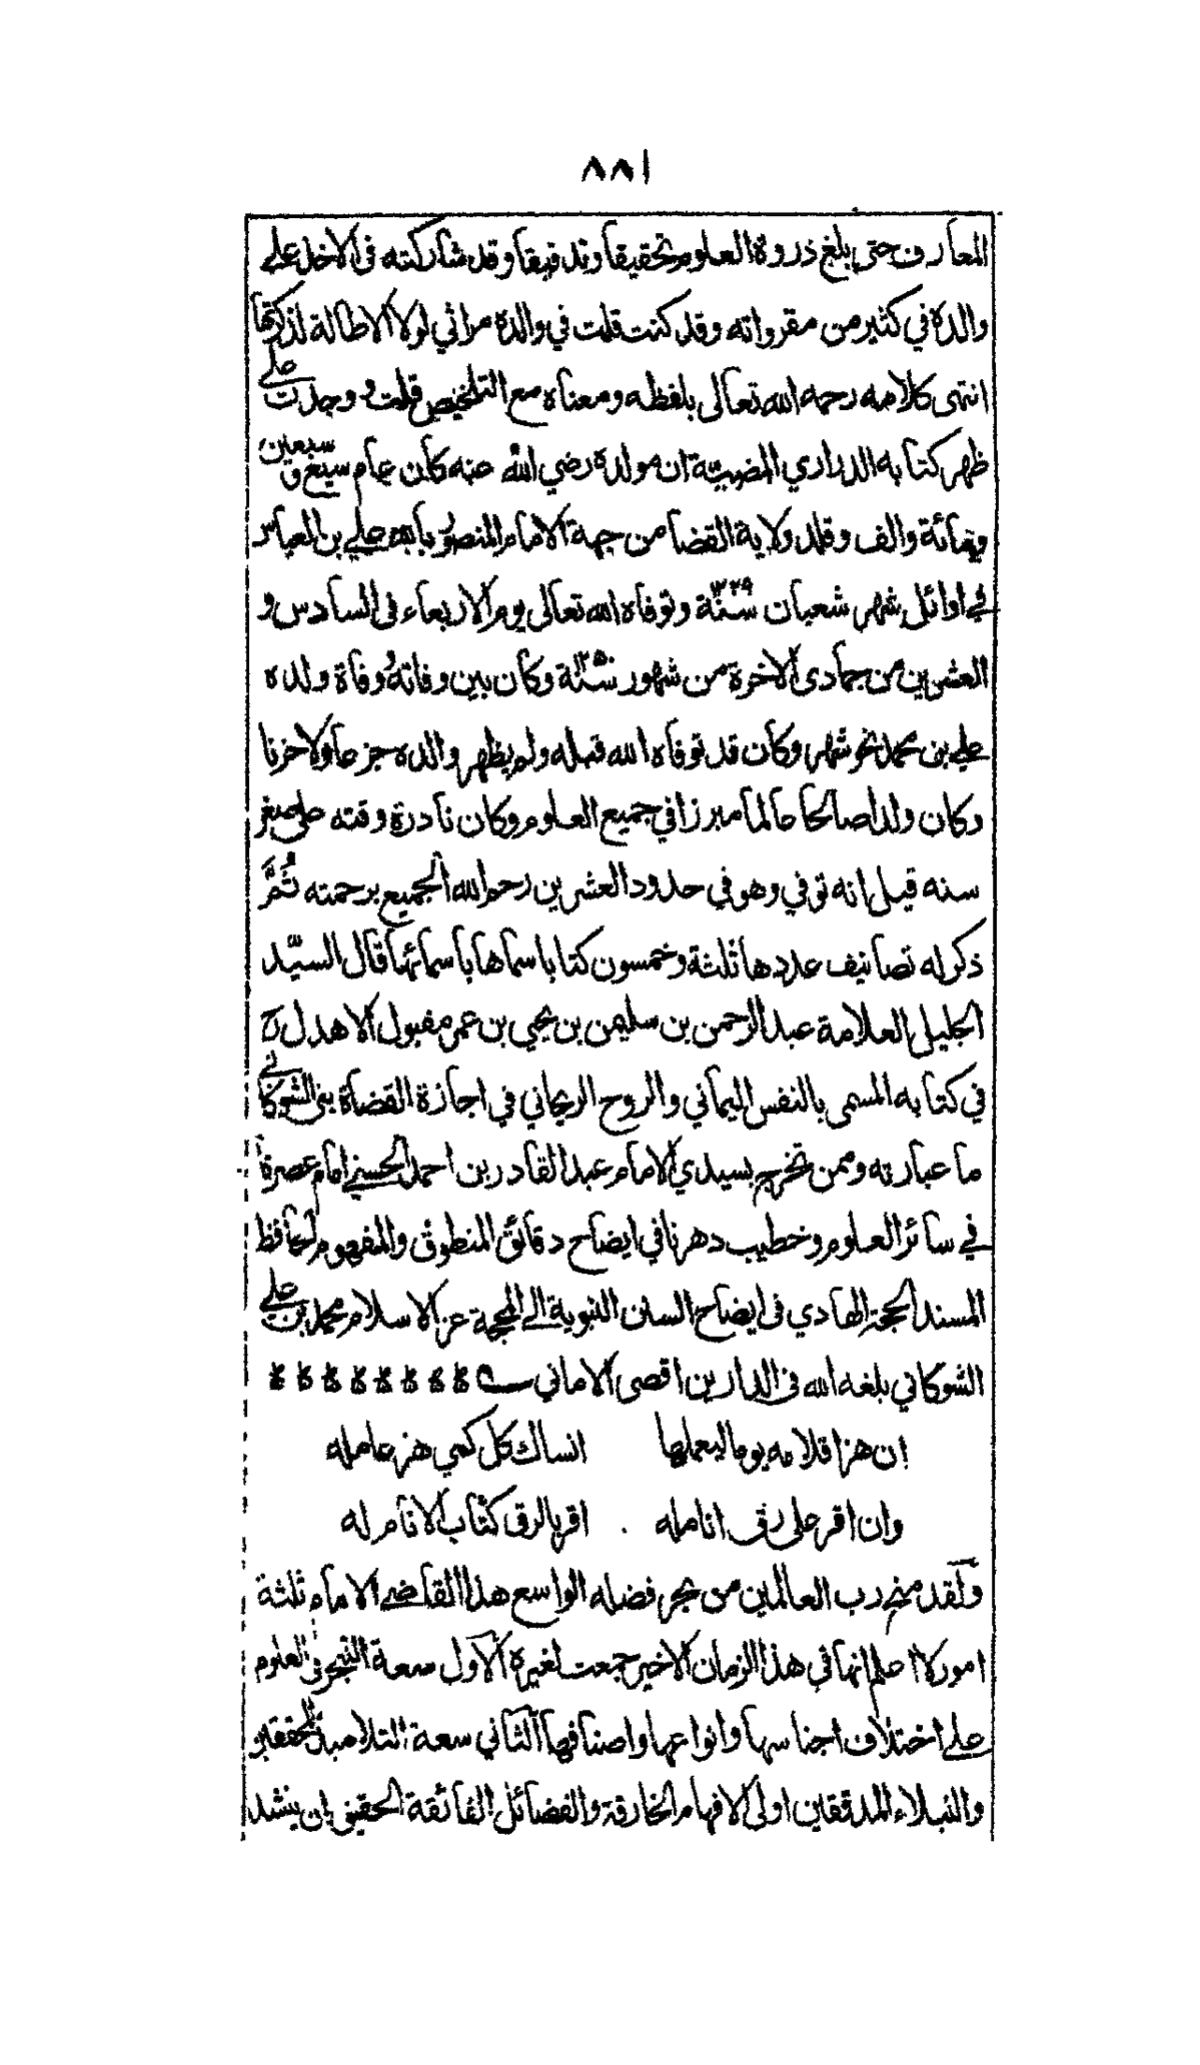 ٨٨١
المعارف حتى بلغ ذروة العلوم تحقيقا وتدقيقا وقد شاركته فى الاخذ على
والده في كثير من مقرواته وقد كنت قلت في والده مراثي لولا الاطالة لذكرتها
انتهى كلامه رحمه الله تعالى بلفظه ومعناه مع التلخيص قلت ووجدت على
ظهر كتابه الدراري المضيئة ان مولده رضي الله عنه كان عام سبع وسبعين
ومائة والف وقلد ولاية القضا من جهة الامام المنصور بالله علي بن العباس
في اوائل شهر شعبان سنة وتوفاه الله تعالى يوم الاربعاء فى السادس و
العشرين من جمادى الاخرة من شهور سنة ١٢٥٠ وكان بين وفاته ووفاة ولده
علي بن محمد نحو شهر وكان قد توفاه الله قبله ولم يظهر والده جزعا ولا حزنا
وكان ولدا صالحا عالما مبرزا في جميع العلوم وكان نادرة وقته على صغر
سنه قيل انه توفي وهو في حدود العشرين رحم الله الجميع برحمته ثُمَّ
ذكر له تصانيف عددها ثلثة وخمسون كتابا سماها باسمائها قال السيّد
الجليل العلامة عبد الرحمن بن سليمن بن يحيي بن عمر مقبول الاهدل رح
في كتابه المسمى بالنفس اليماني والروح الريحاني في اجازة القضاة بنى الشوكاني
ما عبارته وممن تخرج بسيدي الامام عبد القادر بن احمد الحسني امام عصرنا
في سائر العلوم وخطيب دهرنا في ايضاح دقائق المنطوق والمفهوم الحافظ
المسند الحجة الهادي فى ايضاح السنن النبوية الى المحجة عز الاسلام محمد بن علي
الشوكاني بلغه الله فى الدارين اقصى الاماني
ان هز اقلامه يوما ليعملها انساك كل كمي هز عامله
وان اقر على رق انامله اقر بالرق كتاب الانام له
ولقد منح رب العالمين من بحر فضله الواسع هذا القاضي الامام ثلثة
امور لا اعلم انها في هذا الزمان الاخير جمعت لغيره الاول سعة التبحر فى العلوم
على اختلاف اجناسها وانواعها واصنافها الثاني سعة التلاميذ المحققين
والنبلاء المدققين اولى الافهام الخارقة والفضائل الفائقة الحقيق ان ينشد